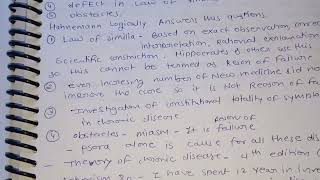 ④ defect in Law of simil
⑤ obstacles.
Hahnemann logically Answers this quations.
① Law of similia - Based on exact observation, correct
interpretation, rational explanation
Scientific constriction. Hippocrates & other use this
So this cannot be termed as Reson of Failure
② even incresing number of New medicine did not
the cure so it is Not Reason of fa
③ Investigation of constitutional totality of symptom
in chronic disease Reson of
④ obstacles - miasm - It is failure
- psora alone is cause for all these di
- Theory of chronic disease - 4th edition (
- I have spent 12 year in inve